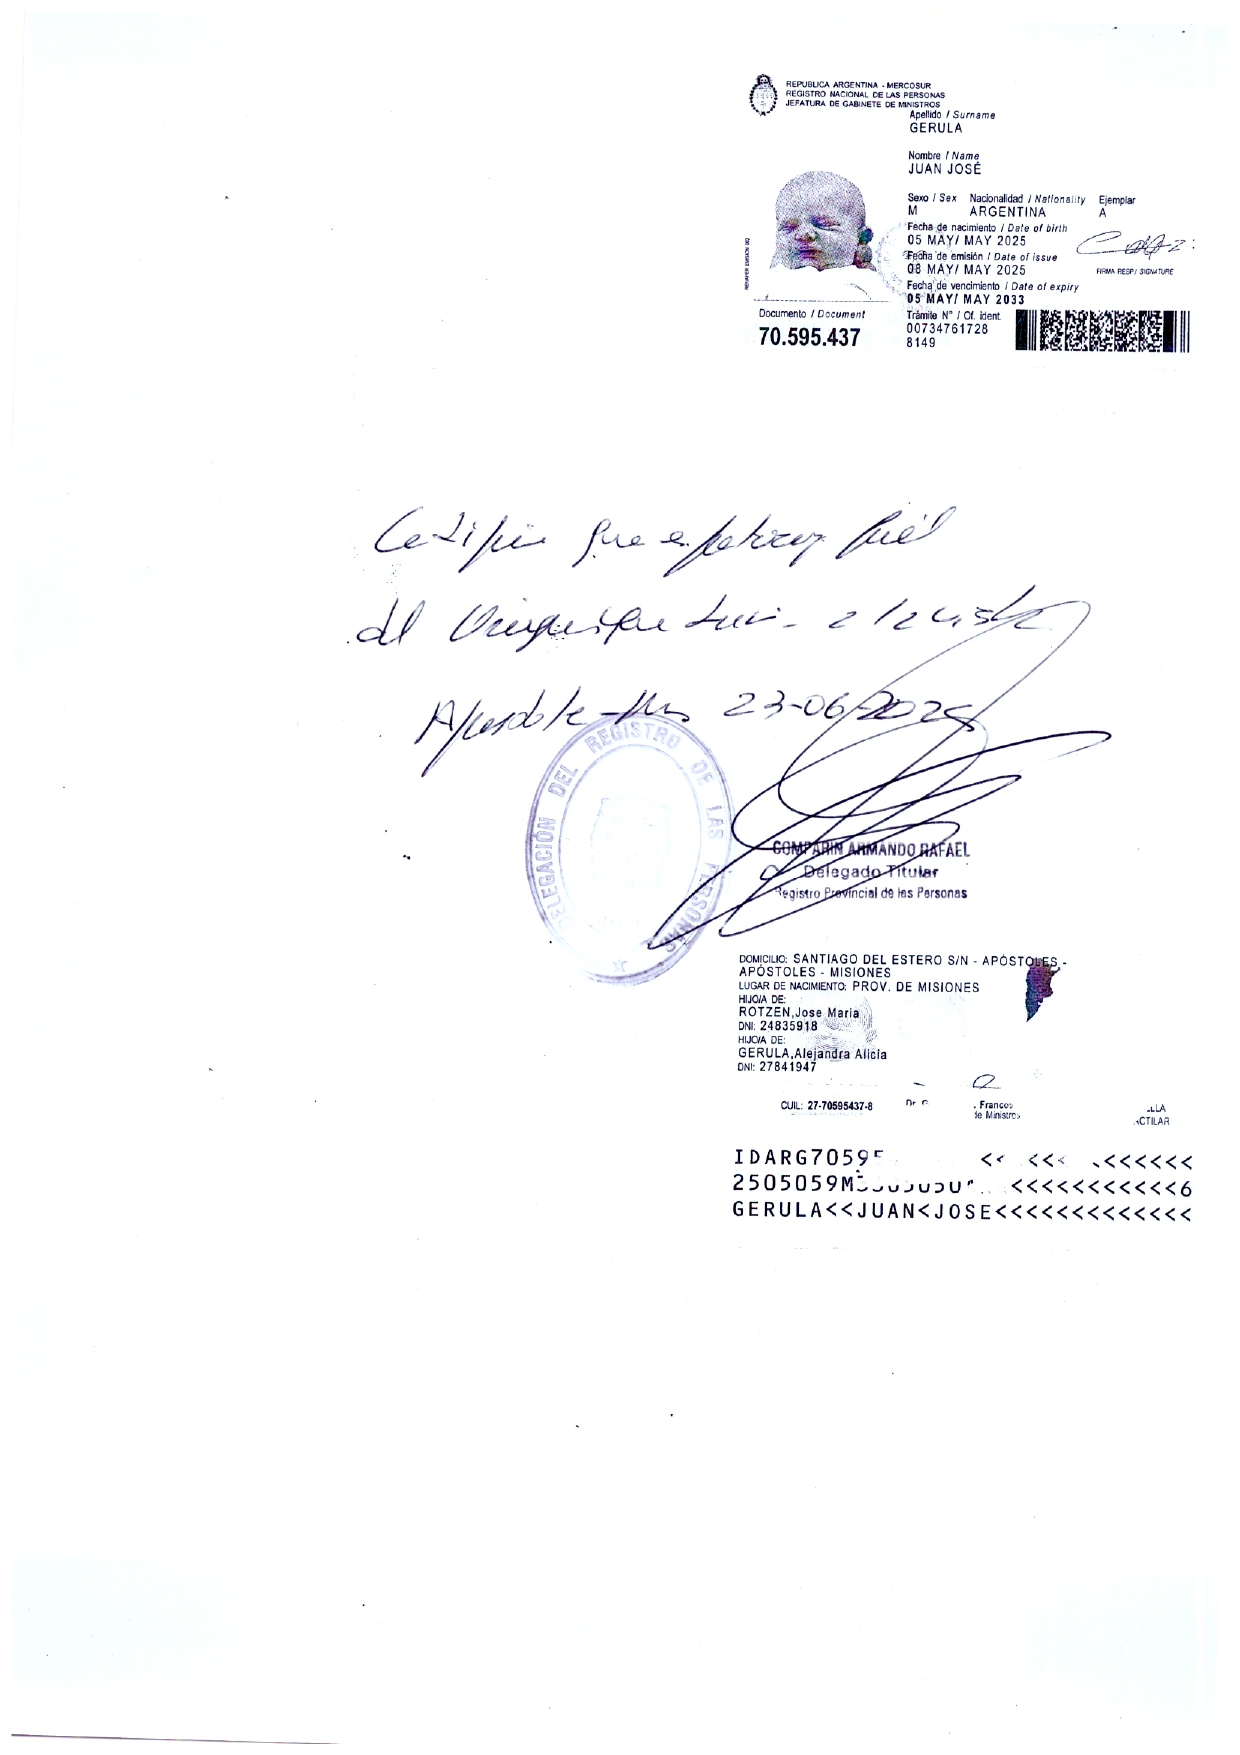 REPUBLICA ARGENTINA - MERCOSUR
REGISTRO NACIONAL DE LAS PERSONAS
JEFATURA DE GABINETE DE MINISTROS
Apellido / Surname
GERULA
Nombre / Name
JUAN JOSÉ
Sexo / Sex Nacionalidad / Nationality Ejemplar
M ARGENTINA A
Fecha de nacimiento / Date of birth
05 MAY/ MAY 2025
Fecha de emisión / Date of issue
08 MAY/ MAY 2025
FIRMA RESP./ SIGNATURE
Fecha de vencimiento / Date of expiry
05 MAY/ MAY 2033
Documento / Document
70.595.437
Trámite N° / Of. ident.
00734761728
8149
que fiel
del
23-06/2025
DELEGACIÓN DEL REGISTRO DE LAS PERSONAS
COMPARIN ARMANDO RAFAEL
Delegado Titular
Registro Provincial de las Personas
DOMICILIO: SANTIAGO DEL ESTERO S/N - APÓSTOLES -
APÓSTOLES - MISIONES
LUGAR DE NACIMIENTO: PROV. DE MISIONES
HIJO/A DE:
ROTZEN,Jose Maria
DNI: 24835918
HIJO/A DE:
GERULA,Alejandra Alicia
DNI: 27841947
CUIL: 27-70595437-8
IDARG7059
2505059M <<<<<<<<<<<<6
GERULA<<JUAN<JOSE<<<<<<<<<<<<<